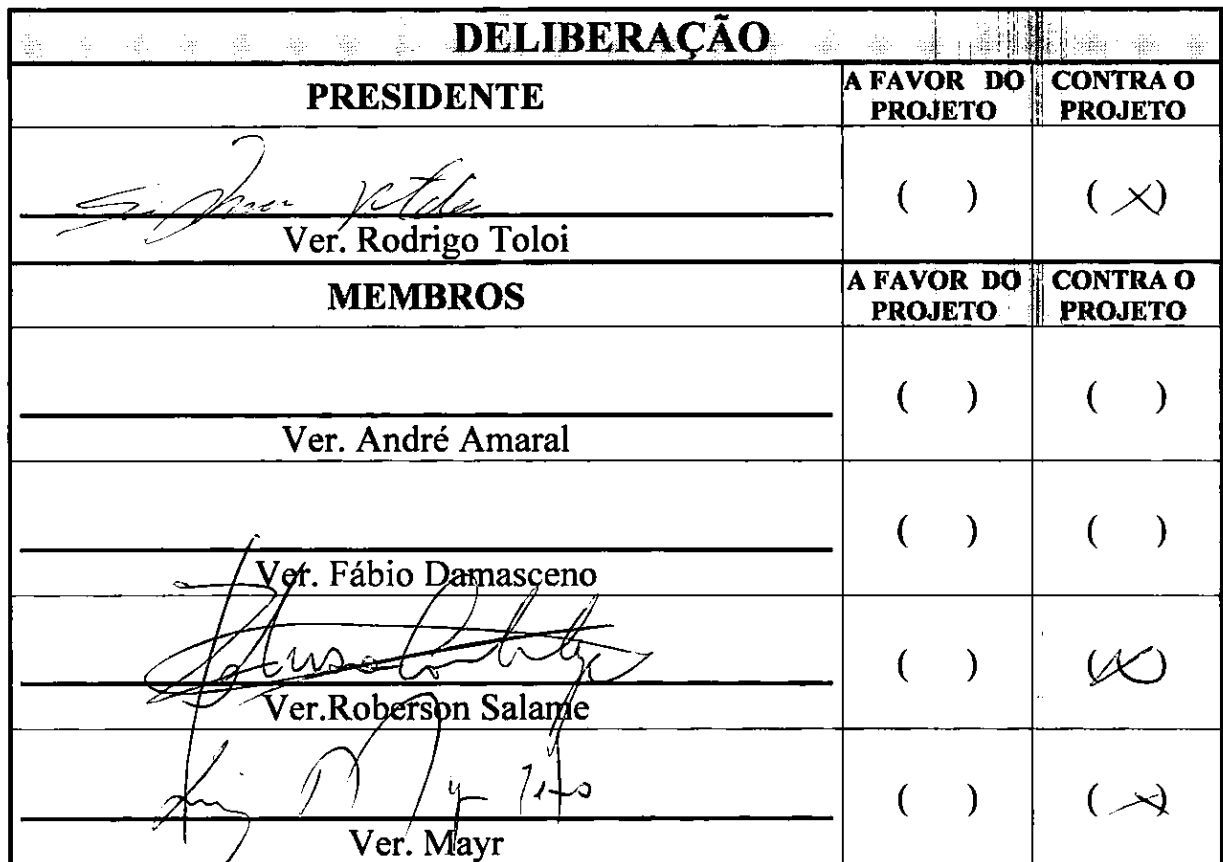 DELIBERAÇÃO
PRESIDENTE
A FAVOR DO PROJETO
CONTRA O PROJETO
( ) (X)
Ver. Rodrigo Toloi
MEMBROS
A FAVOR DO PROJETO
CONTRA O PROJETO
( ) ( )
Ver. André Amaral
( ) ( )
Ver. Fábio Damasceno
( ) (X)
Ver.Roberson Salame
( ) (X)
Ver. Mayr